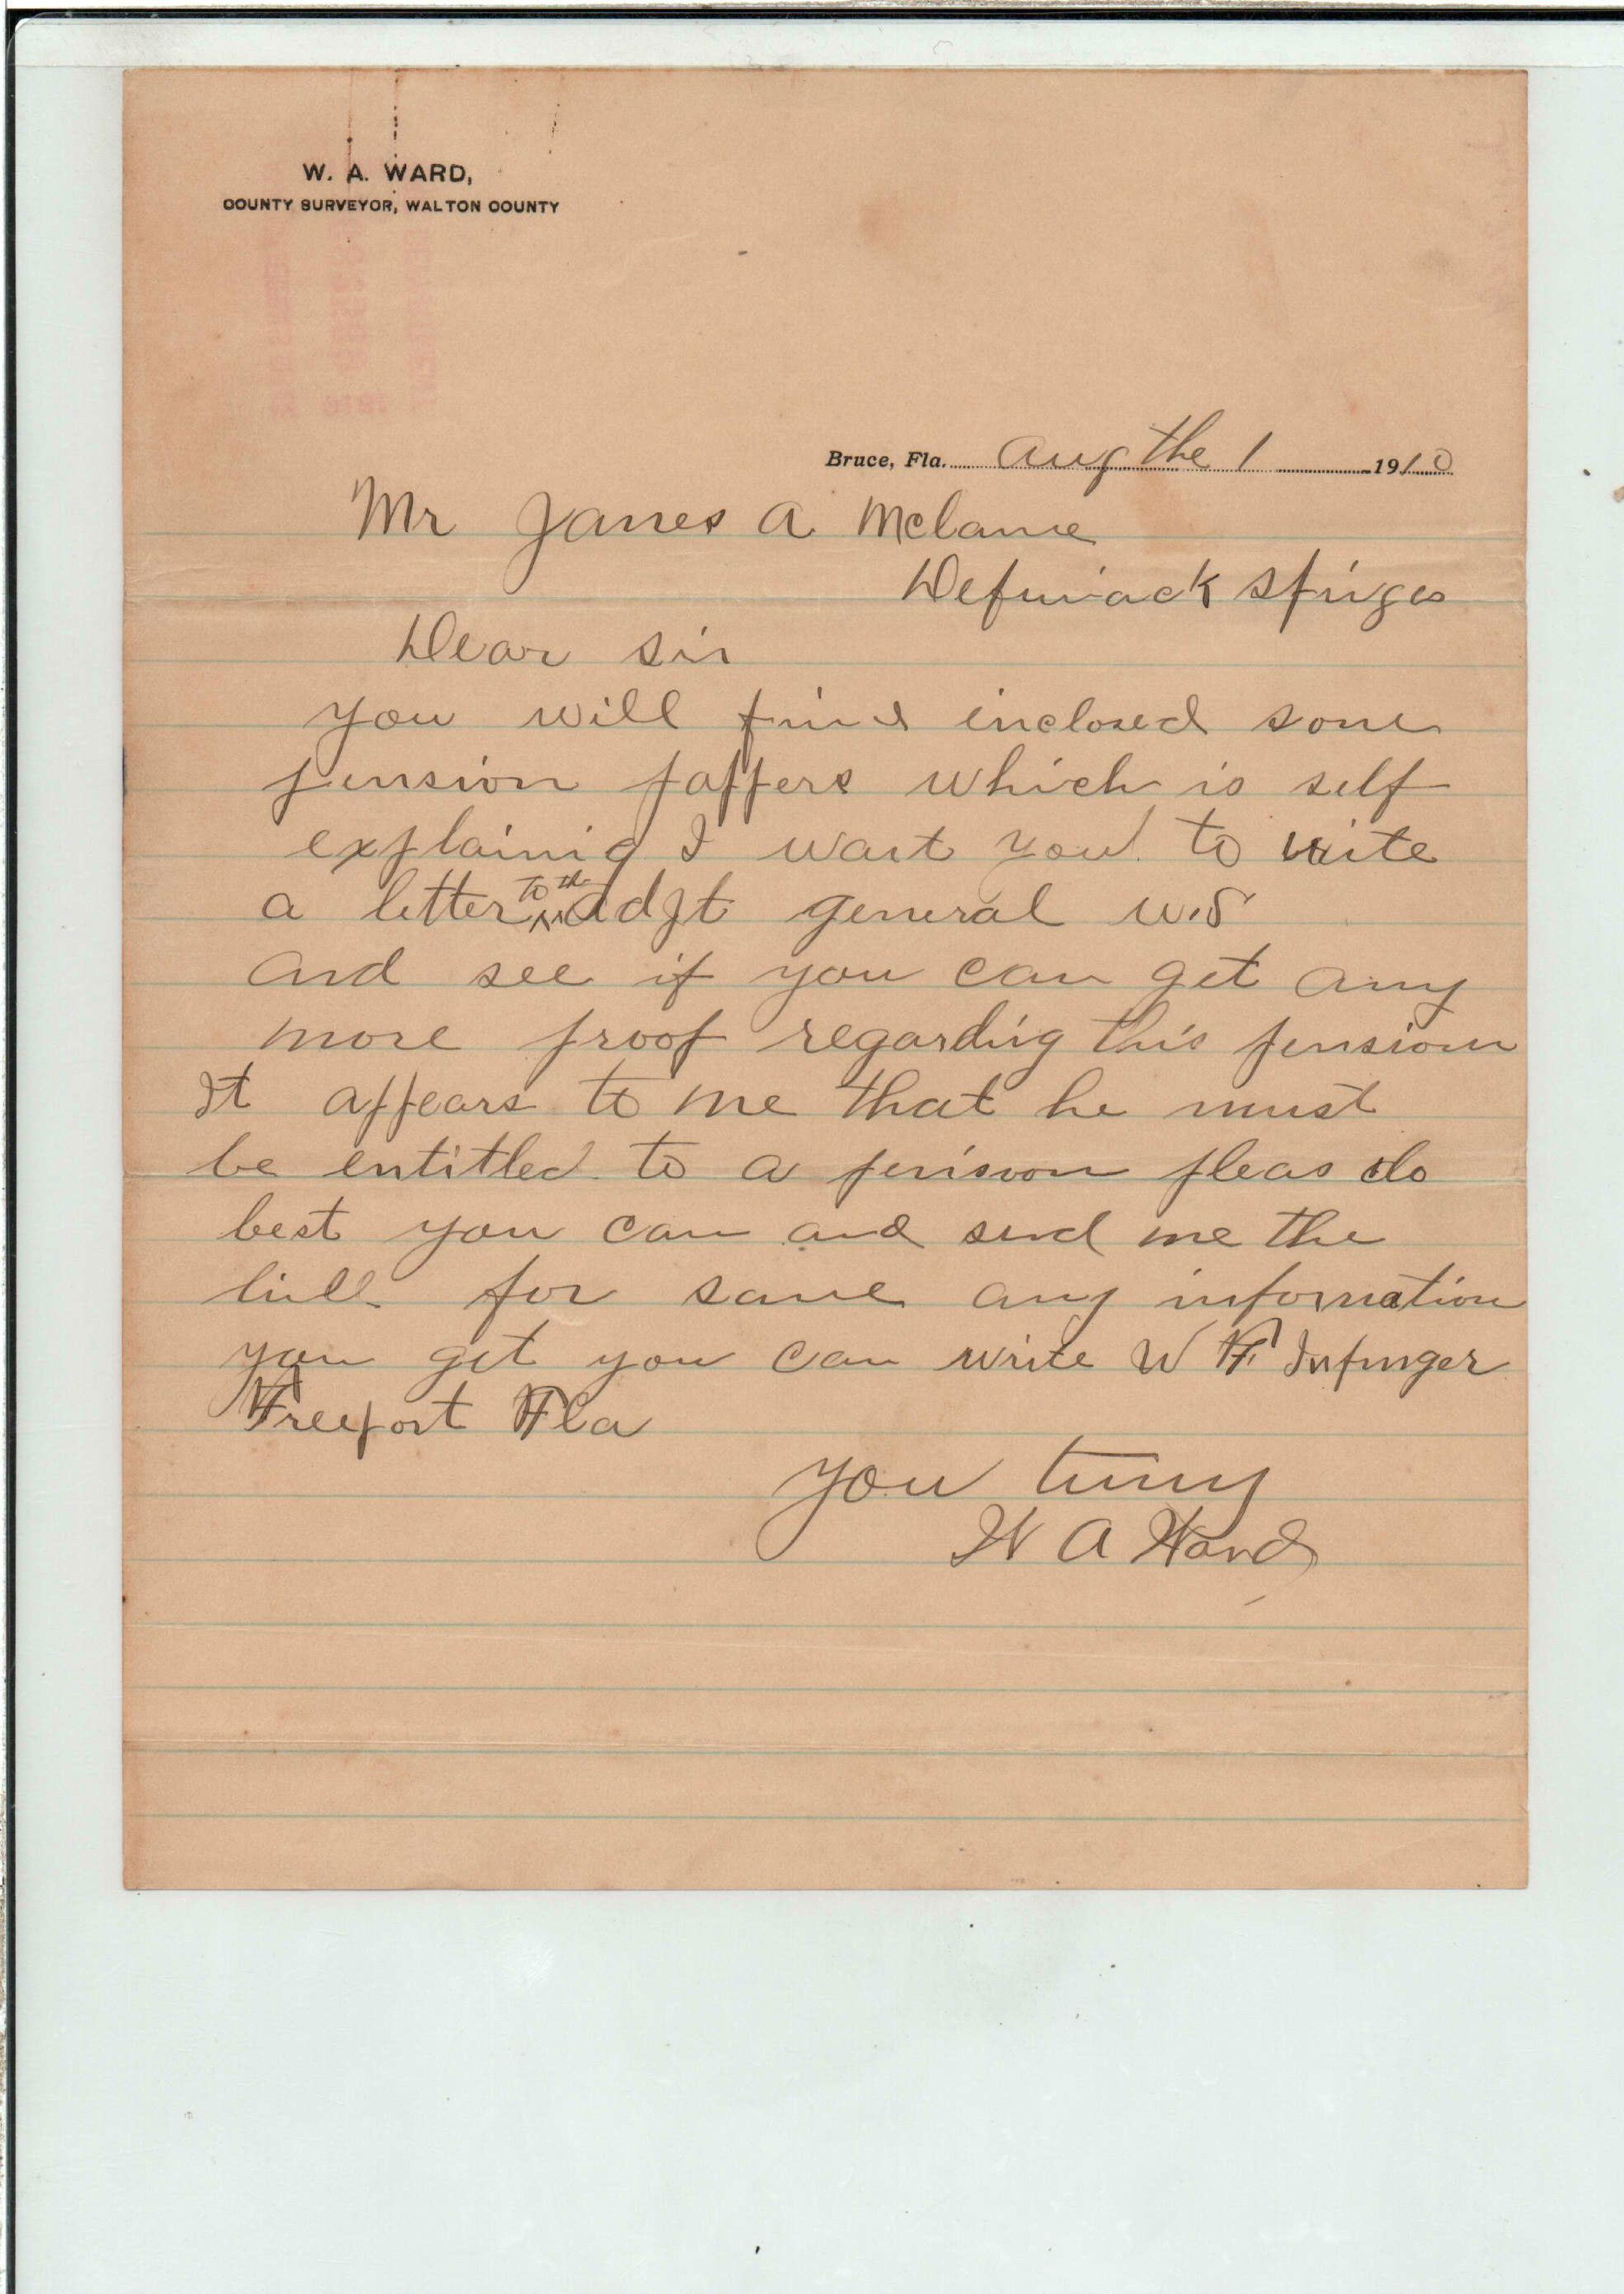 W. A. WARD,
COUNTY SURVEYOR, WALTON COUNTY
Bruce, Fla. Aug the 1 1910
Mr James A Mclane
Defuniack Springs
Dear Sir
you will find inclosed some
pension pappers which is self
explainig I want you to write
a letter to the Adjt general U.S
and see if you can get any
more proof regarding this pension
It appears to me that he must
be entitled to a pension pleas do
best you can and send me the
bill for same any information
you get you can write W F Infinger
Freeport Fla
you truly
W A Ward